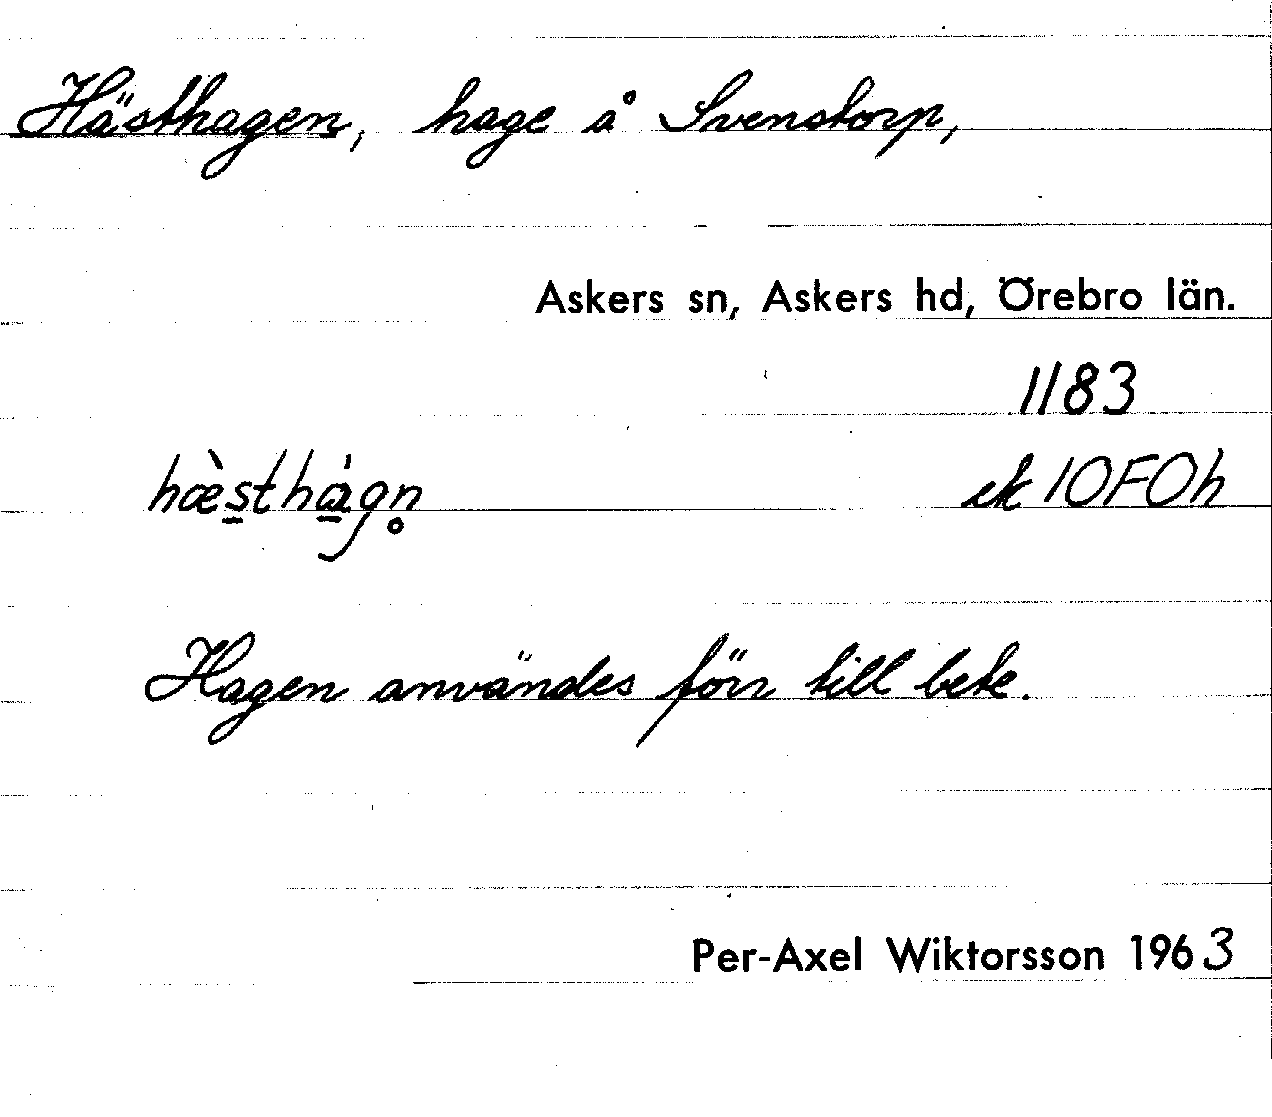 Hästhagen, hage å Svenstorp,
Askers sn, Askers hd, Örebro län.
1183
hæ̀s̱thà̱gn̥ ek 10F0h
Hagen användes förr till bete.
Per-Axel Wiktorsson 1963